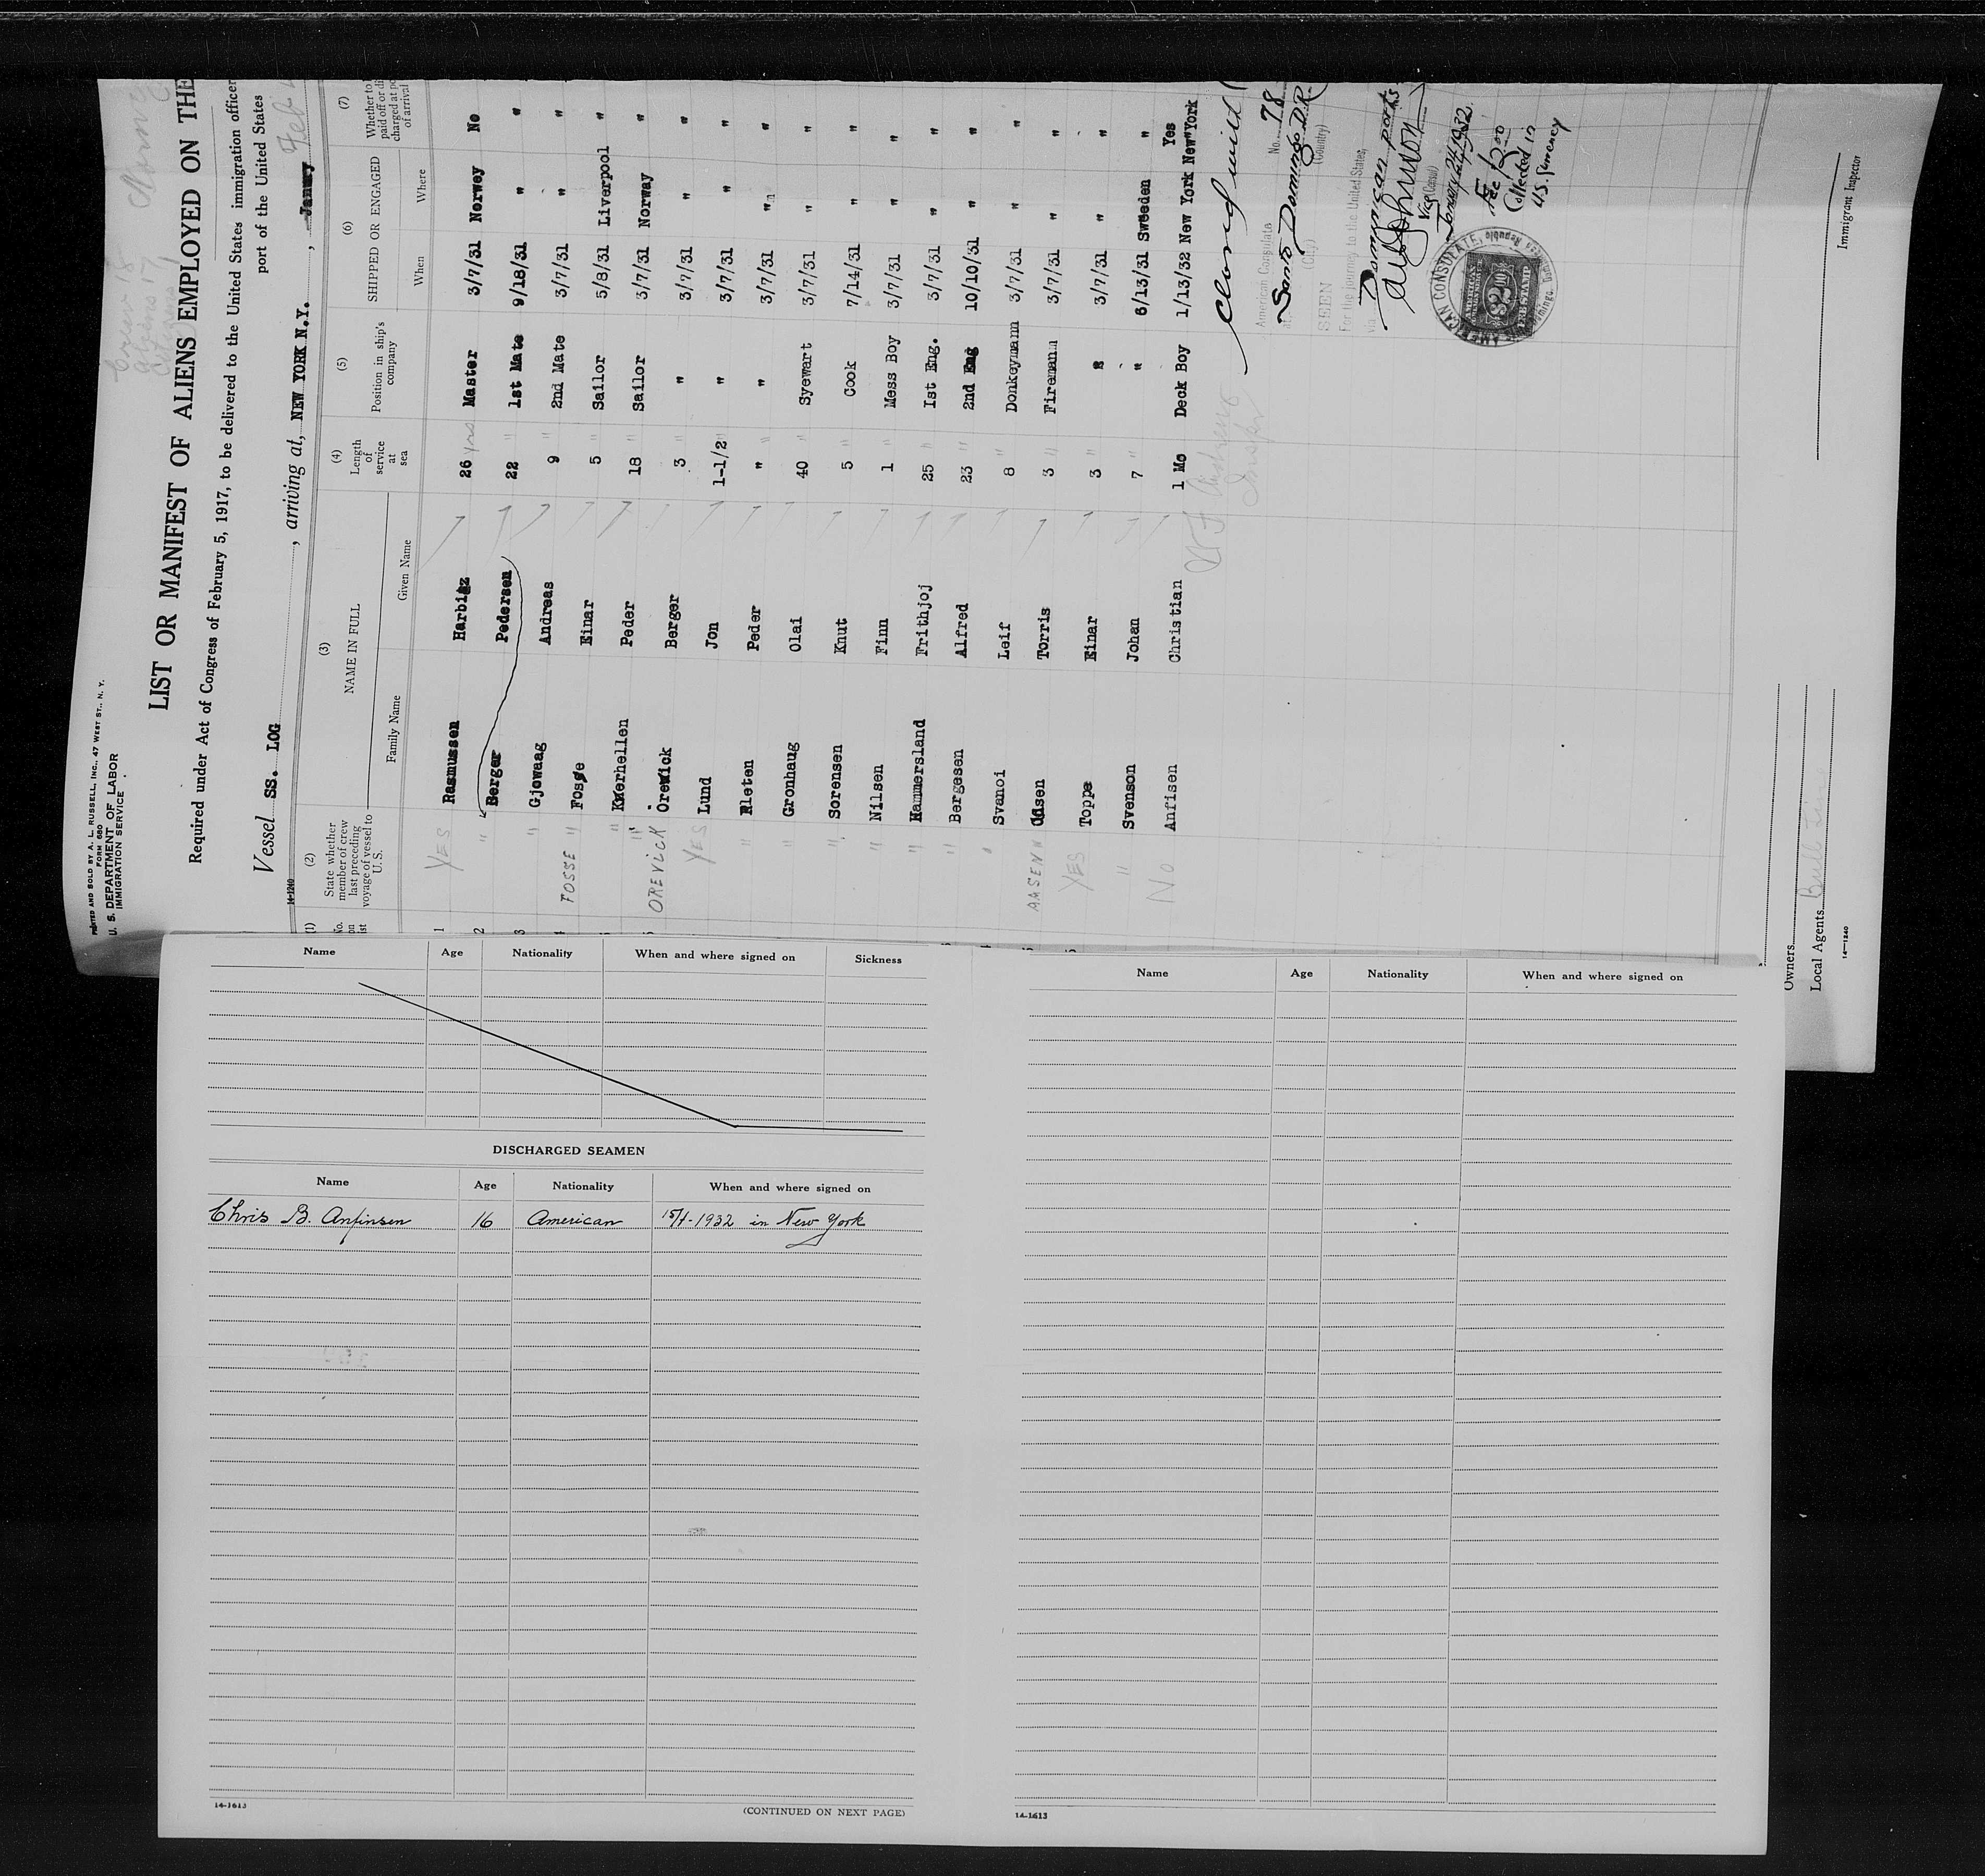 PRINTED AND SOLD BY A. L. RUSSELL, INC., 47 WEST ST., N. Y.
FORM 680
U. S. DEPARTMENT OF LABOR
IMMIGRATION SERVICE
Crew 18
aliens 17
LIST OR MANIFEST OF ALIENS EMPLOYED ON THE
Required under Act of Congress of February 5, 1917, to be delivered to the United States immigration officer
port of the United States
Vessel SS. LOG , arriving at, NEW YORK N.Y. , January Feb 4
14-1240
(1) (2) (3) (4) (5) (6) (7)
No. on list
State whether member of crew last preceding voyage of vessel to U.S.
NAME IN FULL
Family Name Given Name
Length of service at sea
Position in ship's company
SHIPPED OR ENGAGED
When Where
Whether to paid off or di charged at po of arrival
1 YES Rasmussen Harbitz 26 yrs Master 3/7/31 Norwey No
2 " Berger Pedersen 22 " 1st Mate 9/18/31 " "
3 " Gjewaag Andreas 9 " 2nd Mate 3/7/31 " "
FOSSE " Fosse Einar 5 " Sailor 5/8/31 Liverpool "
" Kverhellen Peder 18 " Sailor 3/7/31 Norway
OREVICK " Orewick Berger 3 " " 3/7/31 " "
YES Lund Jon 1-1/2 " " 3/7/31 " "
" Fleten Peder " " " 3/7/31 " "
" Gronhaug Olai 40 " Syewart 3/7/31 " "
" Sorensen Knut 5 " Cook 7/14/31 " "
" Nilsen Finn 1 " Mess Boy 3/7/31 " "
" Hammersland Frithjoj 25 " 1st Eng. 3/7/31 " "
" Bergesen Alfred 23 " 2nd Eng 10/10/31 " "
" Svanoi Leif 8 " Donkeymann 3/7/31 " "
AASEN Odsen Torris 3 " Firemann 3/7/31 " "
YES Toppe Einar 3 " " 3/7/31 " "
" Svenson Johan 7 " " 6/13/31 Sweden "
No Anfisen Christian 1 Mo Deck Boy 1/13/32 New York Yes NewYork
closed with
American Consulate No. 78
at Santo Domingo D.R.
(City) (Country)
SEEN
For the journey to the United States,
via Dominican ports
Johnson
Vice (Consul)
January 24 1932
Fee $2.00
Collected in
U.S. Currency
AMERICAN CONSULATE,
Owners
Local Agents Bull Line
Immigrant Inspector
14-1240
Name Age Nationality When and where signed on Sickness
DISCHARGED SEAMEN
Name Age Nationality When and where signed on
Chris B. Anfinsen 16 American 15/1-1932 in New York
14-1613
(CONTINUED ON NEXT PAGE)
Name Age Nationality When and where signed on
14-1613